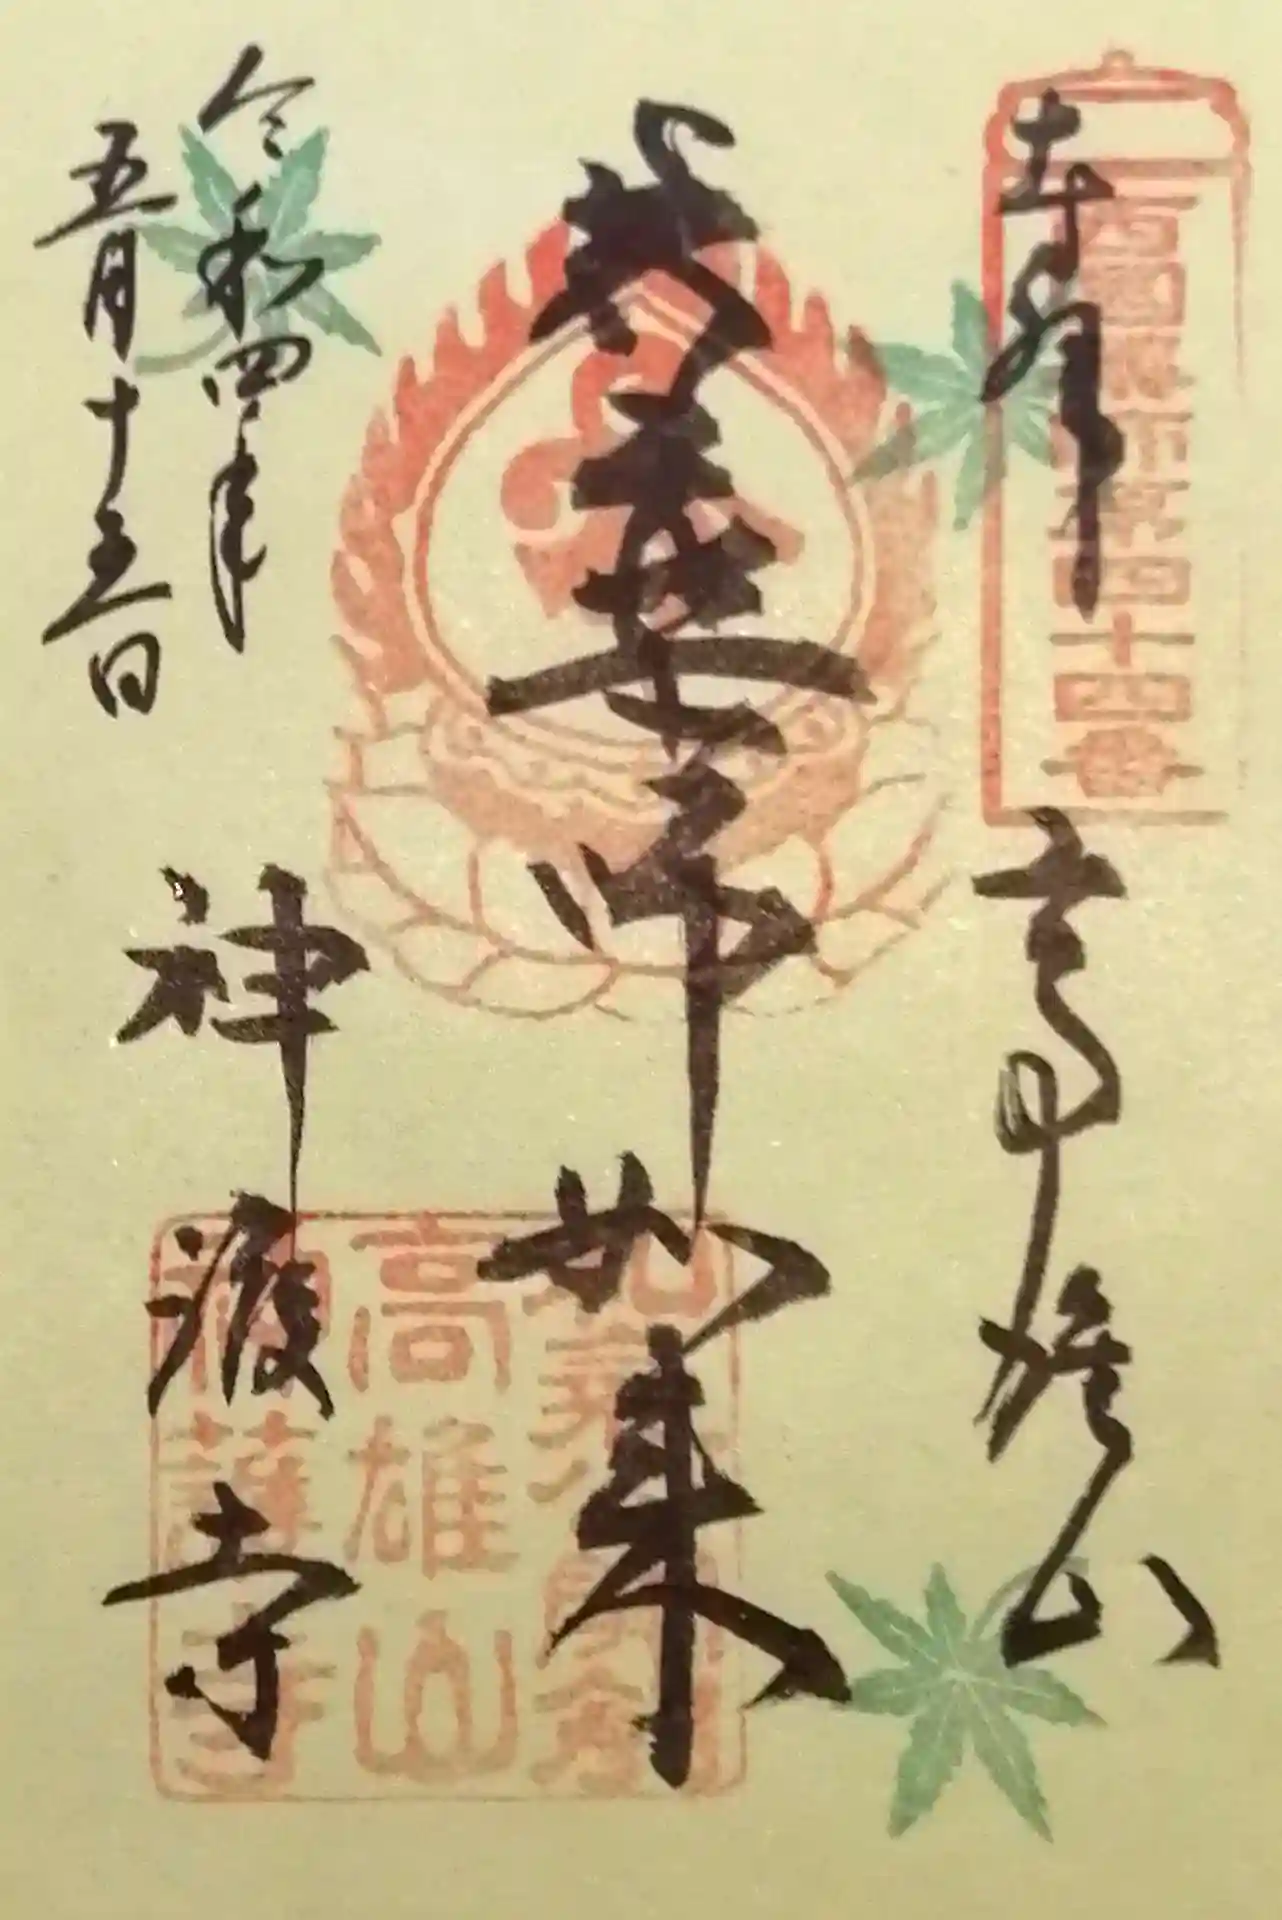 奉拝
高雄山
西国薬師第四十四番
薬師如来
令和四年
五月十五日
神護寺
高雄山
神護寺